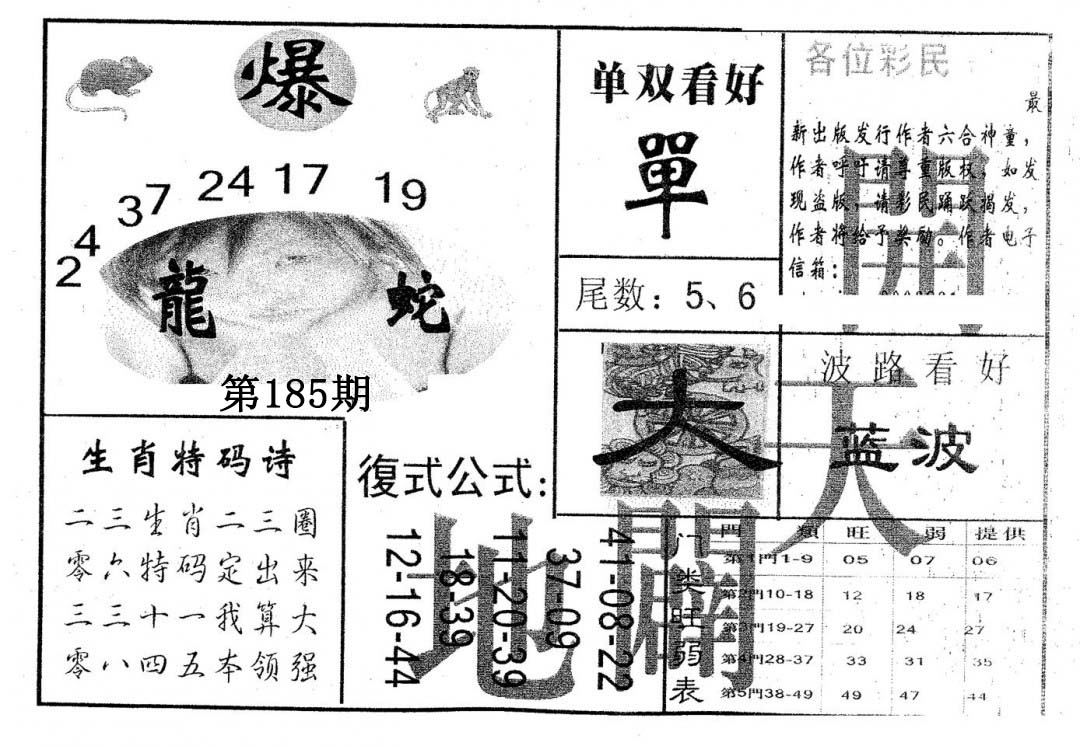 爆
24
37
24
17
19
龍
蛇
第185期
单双看好
單
尾数：5、6
各位彩民
最
新出版发行作者六合神童，
作者呼吁请尊重版权，如发
现盗版，请彩民踊跃揭发，
作者将给予奖励。作者电子
信箱：
開
大
波路看好
蓝波
天
生肖特码诗
二三生肖二三圈
零六特码定出来
三三十一我算大
零八四五本领强
復式公式：
41-08-22
37-09
11-20-39
18-39
12-16-44
地
闢
门类旺弱表
門類 旺 弱 提供
第1門1-9 05 07 06
第2門10-18 12 18 17
第3門19-27 20 24 27
第4門28-37 33 31 35
第5門38-49 49 47 44